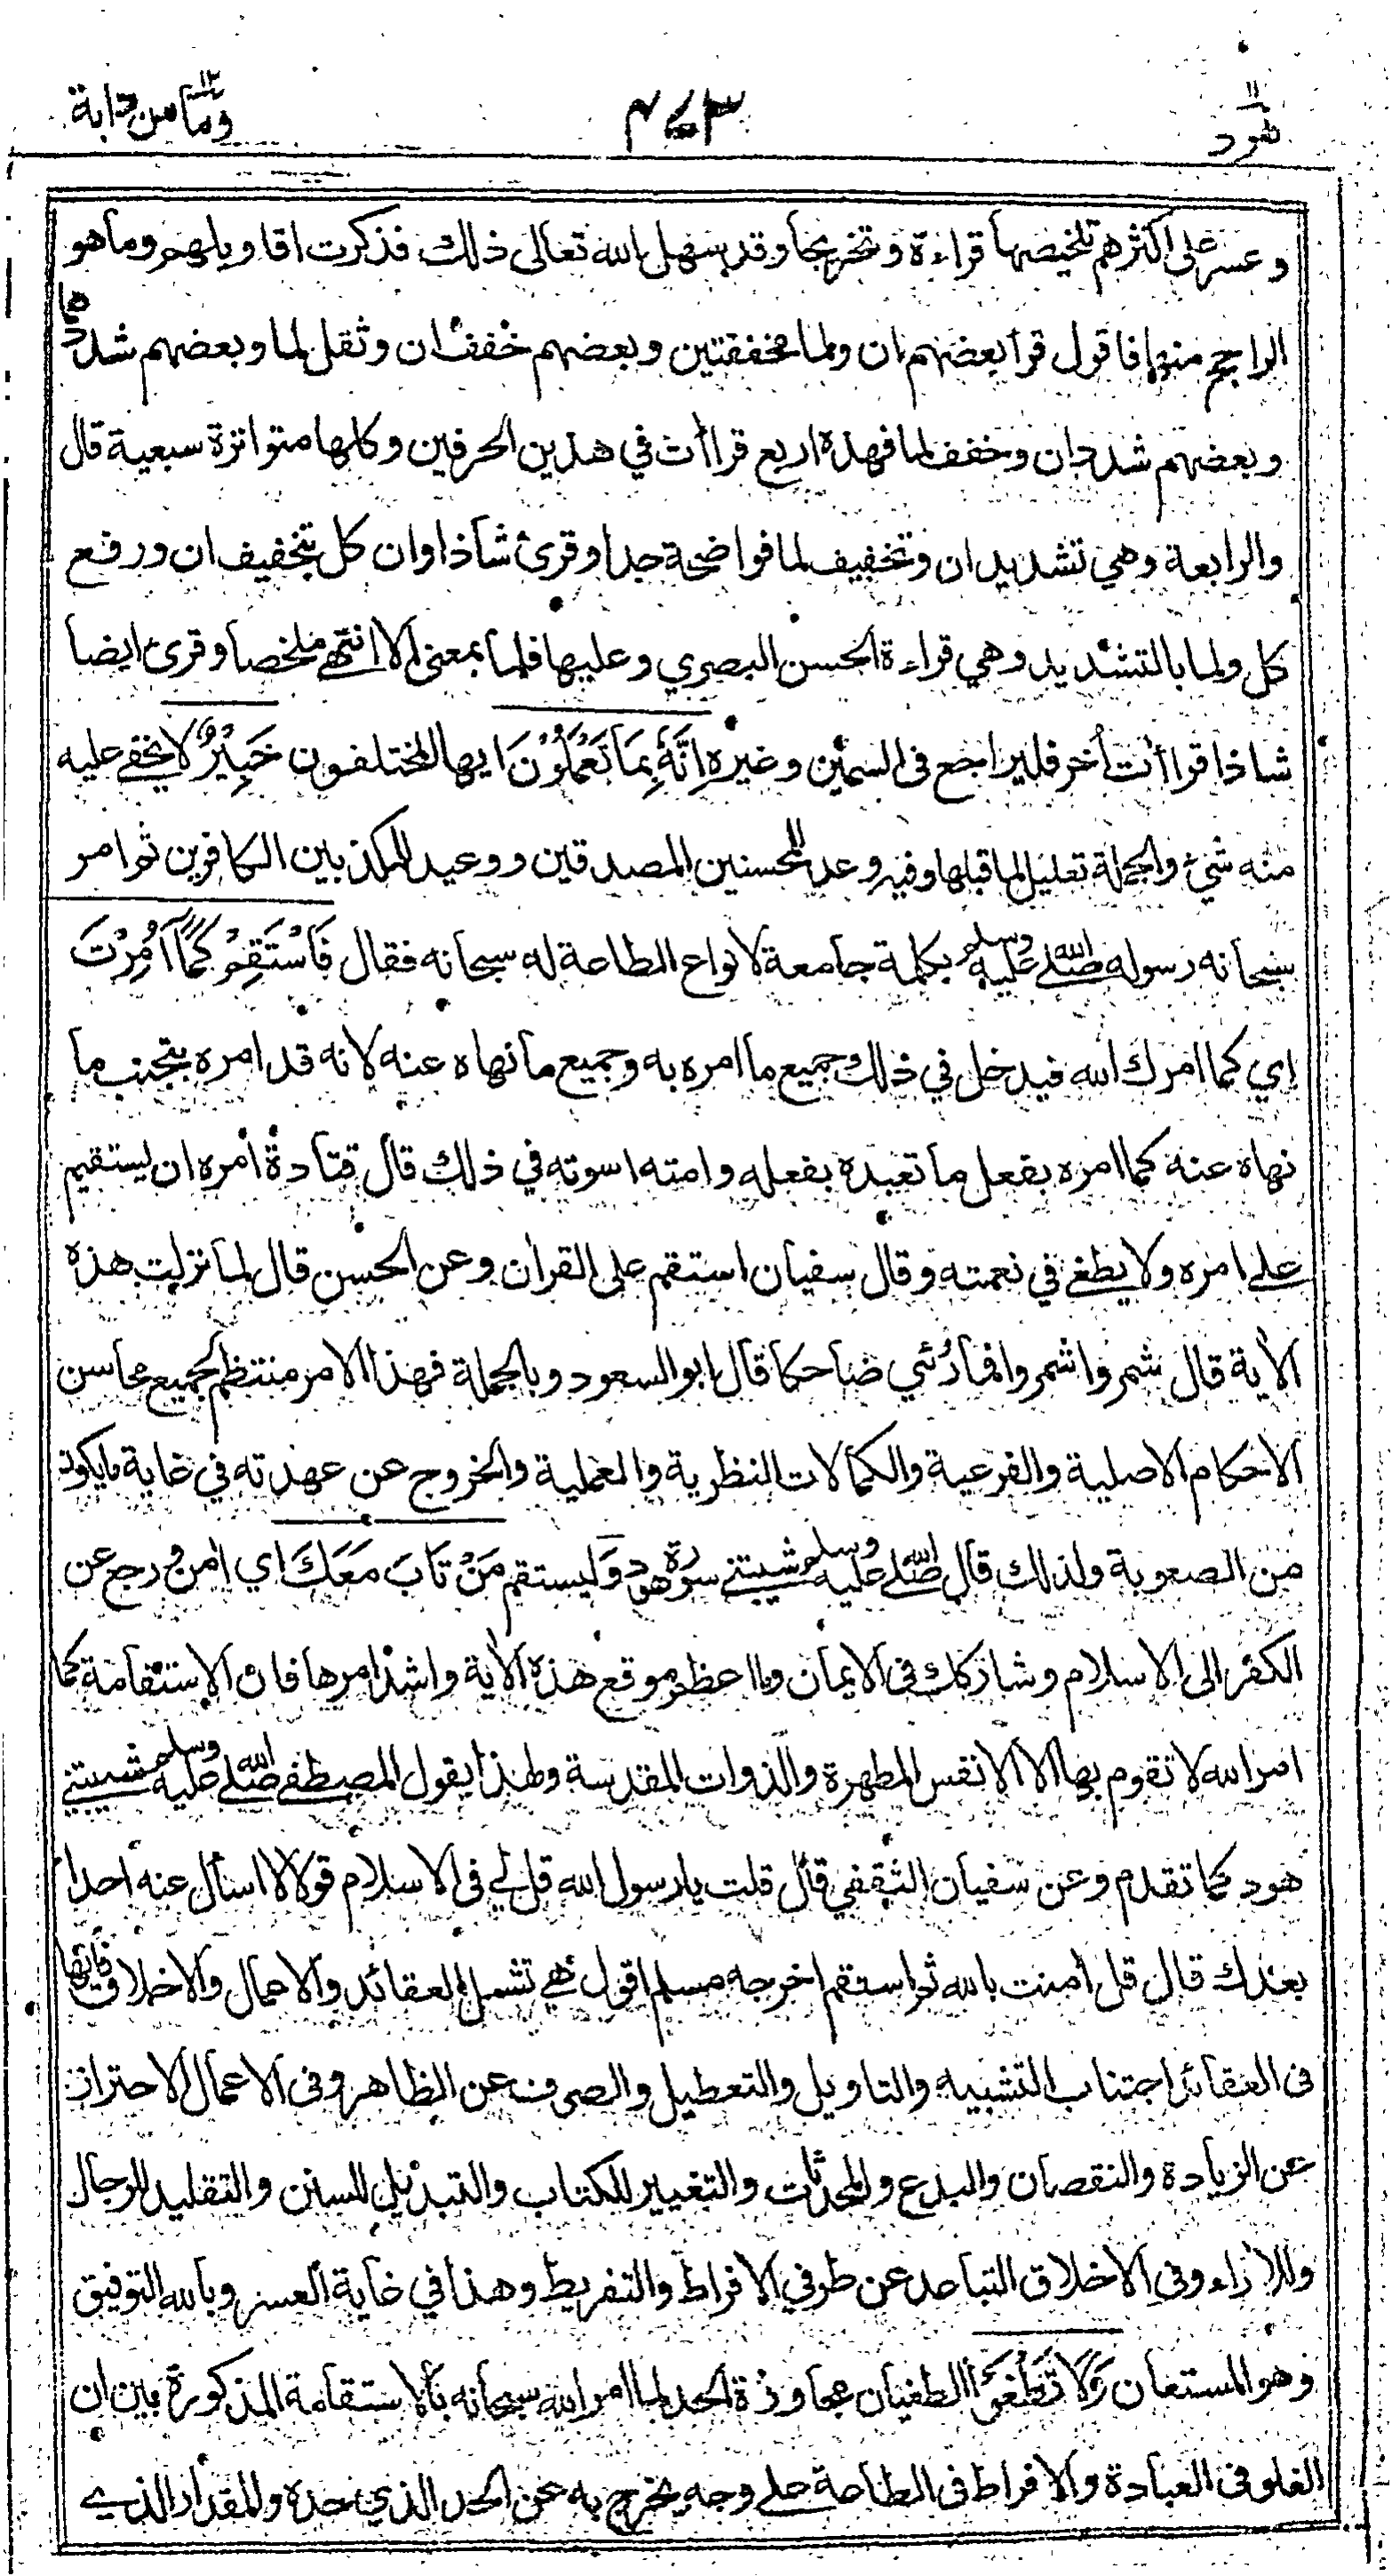 هود ١١
٤٧٣
وما من دابة ١٢
وعسر على اكثرهم تلخيصها قراءة وتخريجا وقد سهل الله تعالى ذلك فذكرت اقاويلهم وما هو
الراجح منها فاقول قرأ بعضهم ان ولما مخففتين وبعضهم خفف ان وثقل لما وبعضهم شددهما
وبعضهم شدد ان وخفف لما فهذه اربع قراأت في هذين الحرفين وكلها متواترة سبعية قال
والرابعة وهي تشديد ان وتخفيف لما فواضحة جدا وقرئ شاذا وان كل بتخفيف ان ورفع
كل ولما بالتشديد وهي قراءة الحسن البصري وعليها فلما بمعنى الا انتهى ملخصا وقرئ ايضا
شاذا قراأت أخر فليراجع فى السمين وغيره اِنَّهٗ بِمَا تَعْمَلُوْنَ ايها المختلفون خَبِيْرٌ لا يخفى عليه
منه شئ والجملة تعليل لما قبلها وفيه وعد للمحسنين المصدقين ووعيد للمكذبين الكافرين ثم امر
سبحانه رسوله صلى الله عليه وسلم بكلمة جامعة لانواع الطاعة له سبحانه فقال فَاسْتَقِمْ كَمَآ اُمِرْتَ
اي كما امرك الله فيدخل في ذلك جميع ما امره به وجميع ما نهاه عنه لانه قد امره بتجنب ما
نهاه عنه كما امره بفعل ما تعبده بفعله وامته اسوته في ذلك قال قتادة أمره ان يستقيم
على امره ولا يطغى في نعمته وقال سفيان استقم على القرأن وعن الحسن قال لما نزلت هذه
الأية قال شمروا شمروا فما رُئي ضاحكا قال ابو السعود وبالجملة فهذا الامر منتظم لجميع محاسن
الاحكام الاصلية والفرعية والكمالات النظرية والعملية والخروج عن عهدته في غاية ما يكون
من الصعوبة ولذلك قال صلى الله عليه وسلم شيبتني سورة هود وَليستقم مَنْ تَابَ مَعَكَ اي أمن ورجع عن
الكفر الى الاسلام وشاركك فى الايمان وما اعظم موقع هذه الأية واشد امرها فان الاستقامة كما
امر الله لا تقوم بها الا الانفس المطهرة والذوات المقدسة ولهذا يقول المصطفى صلى الله عليه وسلم شيبتني
هود كما تقدم وعن سفيان الثقفي قال قلت يا رسول الله قل لي فى الاسلام قولا لا اسأل عنه احدا
بعدك قال قل أمنت بالله ثم استقم اخرجه مسلم اقول هي تشمل العقائد والاعمال والاخلاق فانها
فى العقائد اجتناب التشبيه والتاويل والتعطيل والصرف عن الظاهر وفى الاعمال الاحتراز
عن الزيادة والنقصان والبدع والمحدثات والتغيير للكتاب والتبديل للسنن والتقليد للرجال
وللأراء وفي الاخلاق التباعد عن طرفي الافراط والتفريط وهذا في غاية العسر وبالله التوفيق
وهو المستعان وَلَا تَطْغَوْا الطغيان مجاوزة الحد لما امر الله سبحانه بالاستقامة المذكورة بين ان
الغلو فى العبادة والافراط فى الطاعة على وجه يخرج به عن الحد الذي حده والمقدار الذي